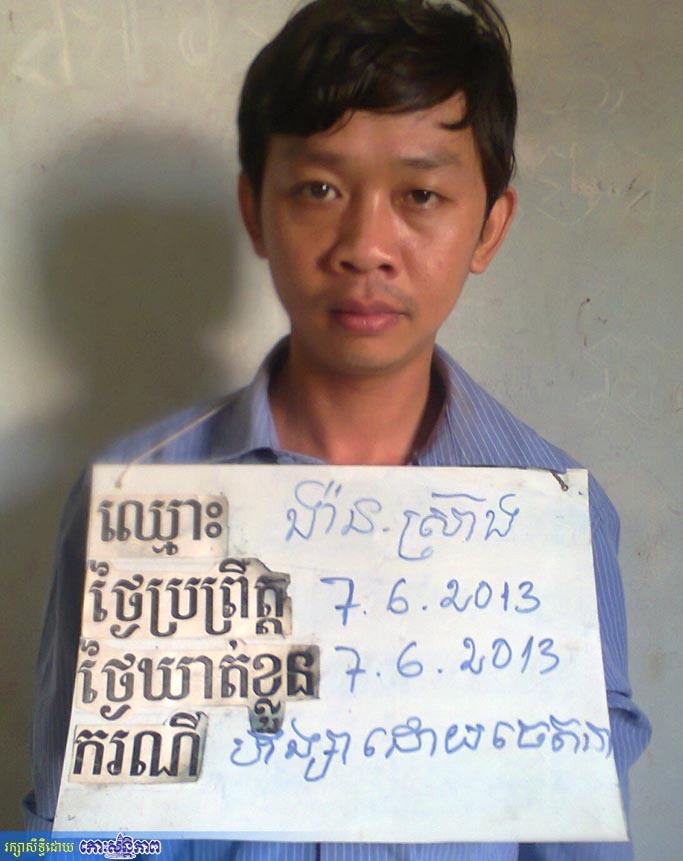 ឈ្មោះ ង៉ាន.ស្រ៊ាង
ថ្ងៃប្រព្រឹត្ត 7.6.2013
ថ្ងៃឃាត់ខ្លួន 7.6.2013
ករណី ហឹង្សាដោយចេតនា
រក្សាសិទ្ធិដោយ កោះសន្តិភាព